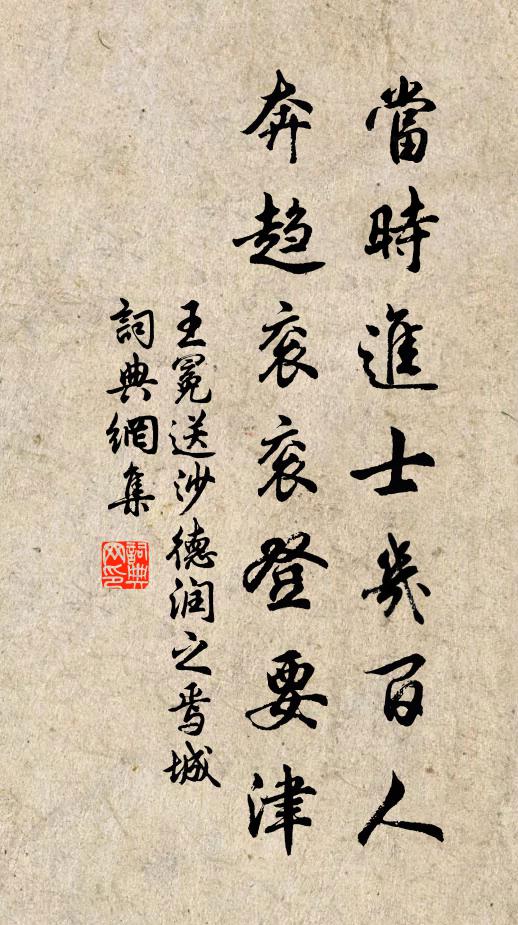 當時進士幾百人
奔趨衮衮登要津
王冕送沙德润之焉城
詞典網集
詞典
网印